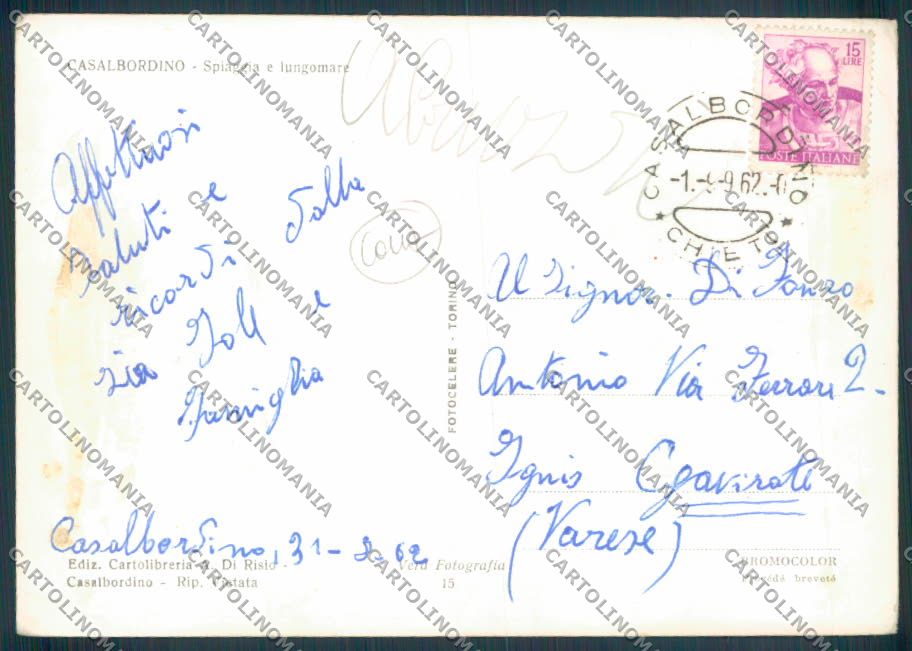 CASALBORDINO - Spiaggia e lungomare
15
LIRE
POSTE ITALIANE
CASALBORDINO
-1.-9-9.62.-
CHIETI
Affettuosi
saluti e
ricordi dalla
zia Joll e
famiglia
Casalbordino, 31-8-62
Ediz. Cartolibreria A. Di Risio
Casalbordino - Rip. Vietata
Vera Fotografia
15
FOTOCELERE - TORINO
Al Signor. Di Fonzo
Antonio Via Ferrari 2-
Ignis Cgavirate
(Varese)
BROMOCOLOR
Procédé breveté
CARTOLINOMANIA